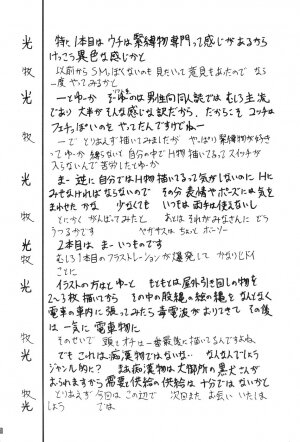 光 特に1本目はウチは緊縛物専門って感じがあるから
けっこう異色な感じかと
牧 以前からSMっぽくないのも見たいって意見もあったのでなら
一度やってみるかと
光 一とゆーか そーゆーのは男性向同人誌ではむしろ主流
であり大半がそんな感じな訳だから、だからこそ コッチは
フェチっぽいのをやってたんですけどねー
牧 ーで とりあえず描いてみましたが やっぱり緊縛物が好き
ってゆーか 縛らないで 自分の中で H物描いてるってスイッチが
入らないんで苦労したとゆーか
光 まー逆に自分ではH物描いてるって気がしないのに Hに
みせなければならないので その分 表情やポーズには気を
まわせたかな 少なくても いつもは両手は使えないし
牧 とにかくがんばってみたと あとはそれがみなさんに どう
うつるかです
光 2本目は まー いつものです
牧 むしろ1本目のフラストレーションが爆発して かなりヒドイ
ことに
光 イラストの方はとゆーと もともとは屋外引き回しの物を
2〜3枚描いてから その中の股縄の絵の縄を なんとなく
電車の車内に張ってみたら毒電波がおりてきて その後
は 一気に 電車物に
牧 そのせいで 頭とオチは一番最後に描いてるんですよね
光 でも これは 痴漢物ではないな… なんなんでしょう
ジャンル的に？ まあ 痴漢物は 大御所の悪犬さんが
おられますから需要と供給の供給は十分ではないかと
牧 とりあえず 今回は この辺で 次回また お会い いたしま
光 しょう では